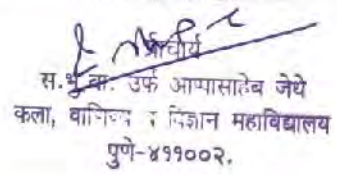 प्राचार्य
स.भु.वा. उर्फ आप्पासाहेब जेधे
कला, वाणिज्य व विज्ञान महाविद्यालय
पुणे-४११००२.